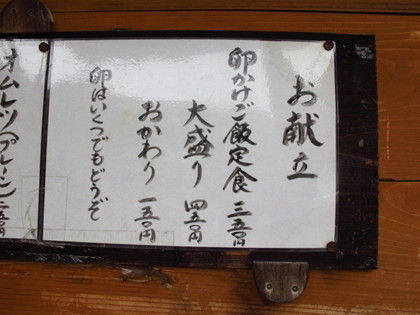 お献立
卵かけご飯定食 三五〇円
大盛り 四五〇円
おかわり 一五〇円
卵はいくつでもどうぞ
オムレツ(プレーン)二五〇円